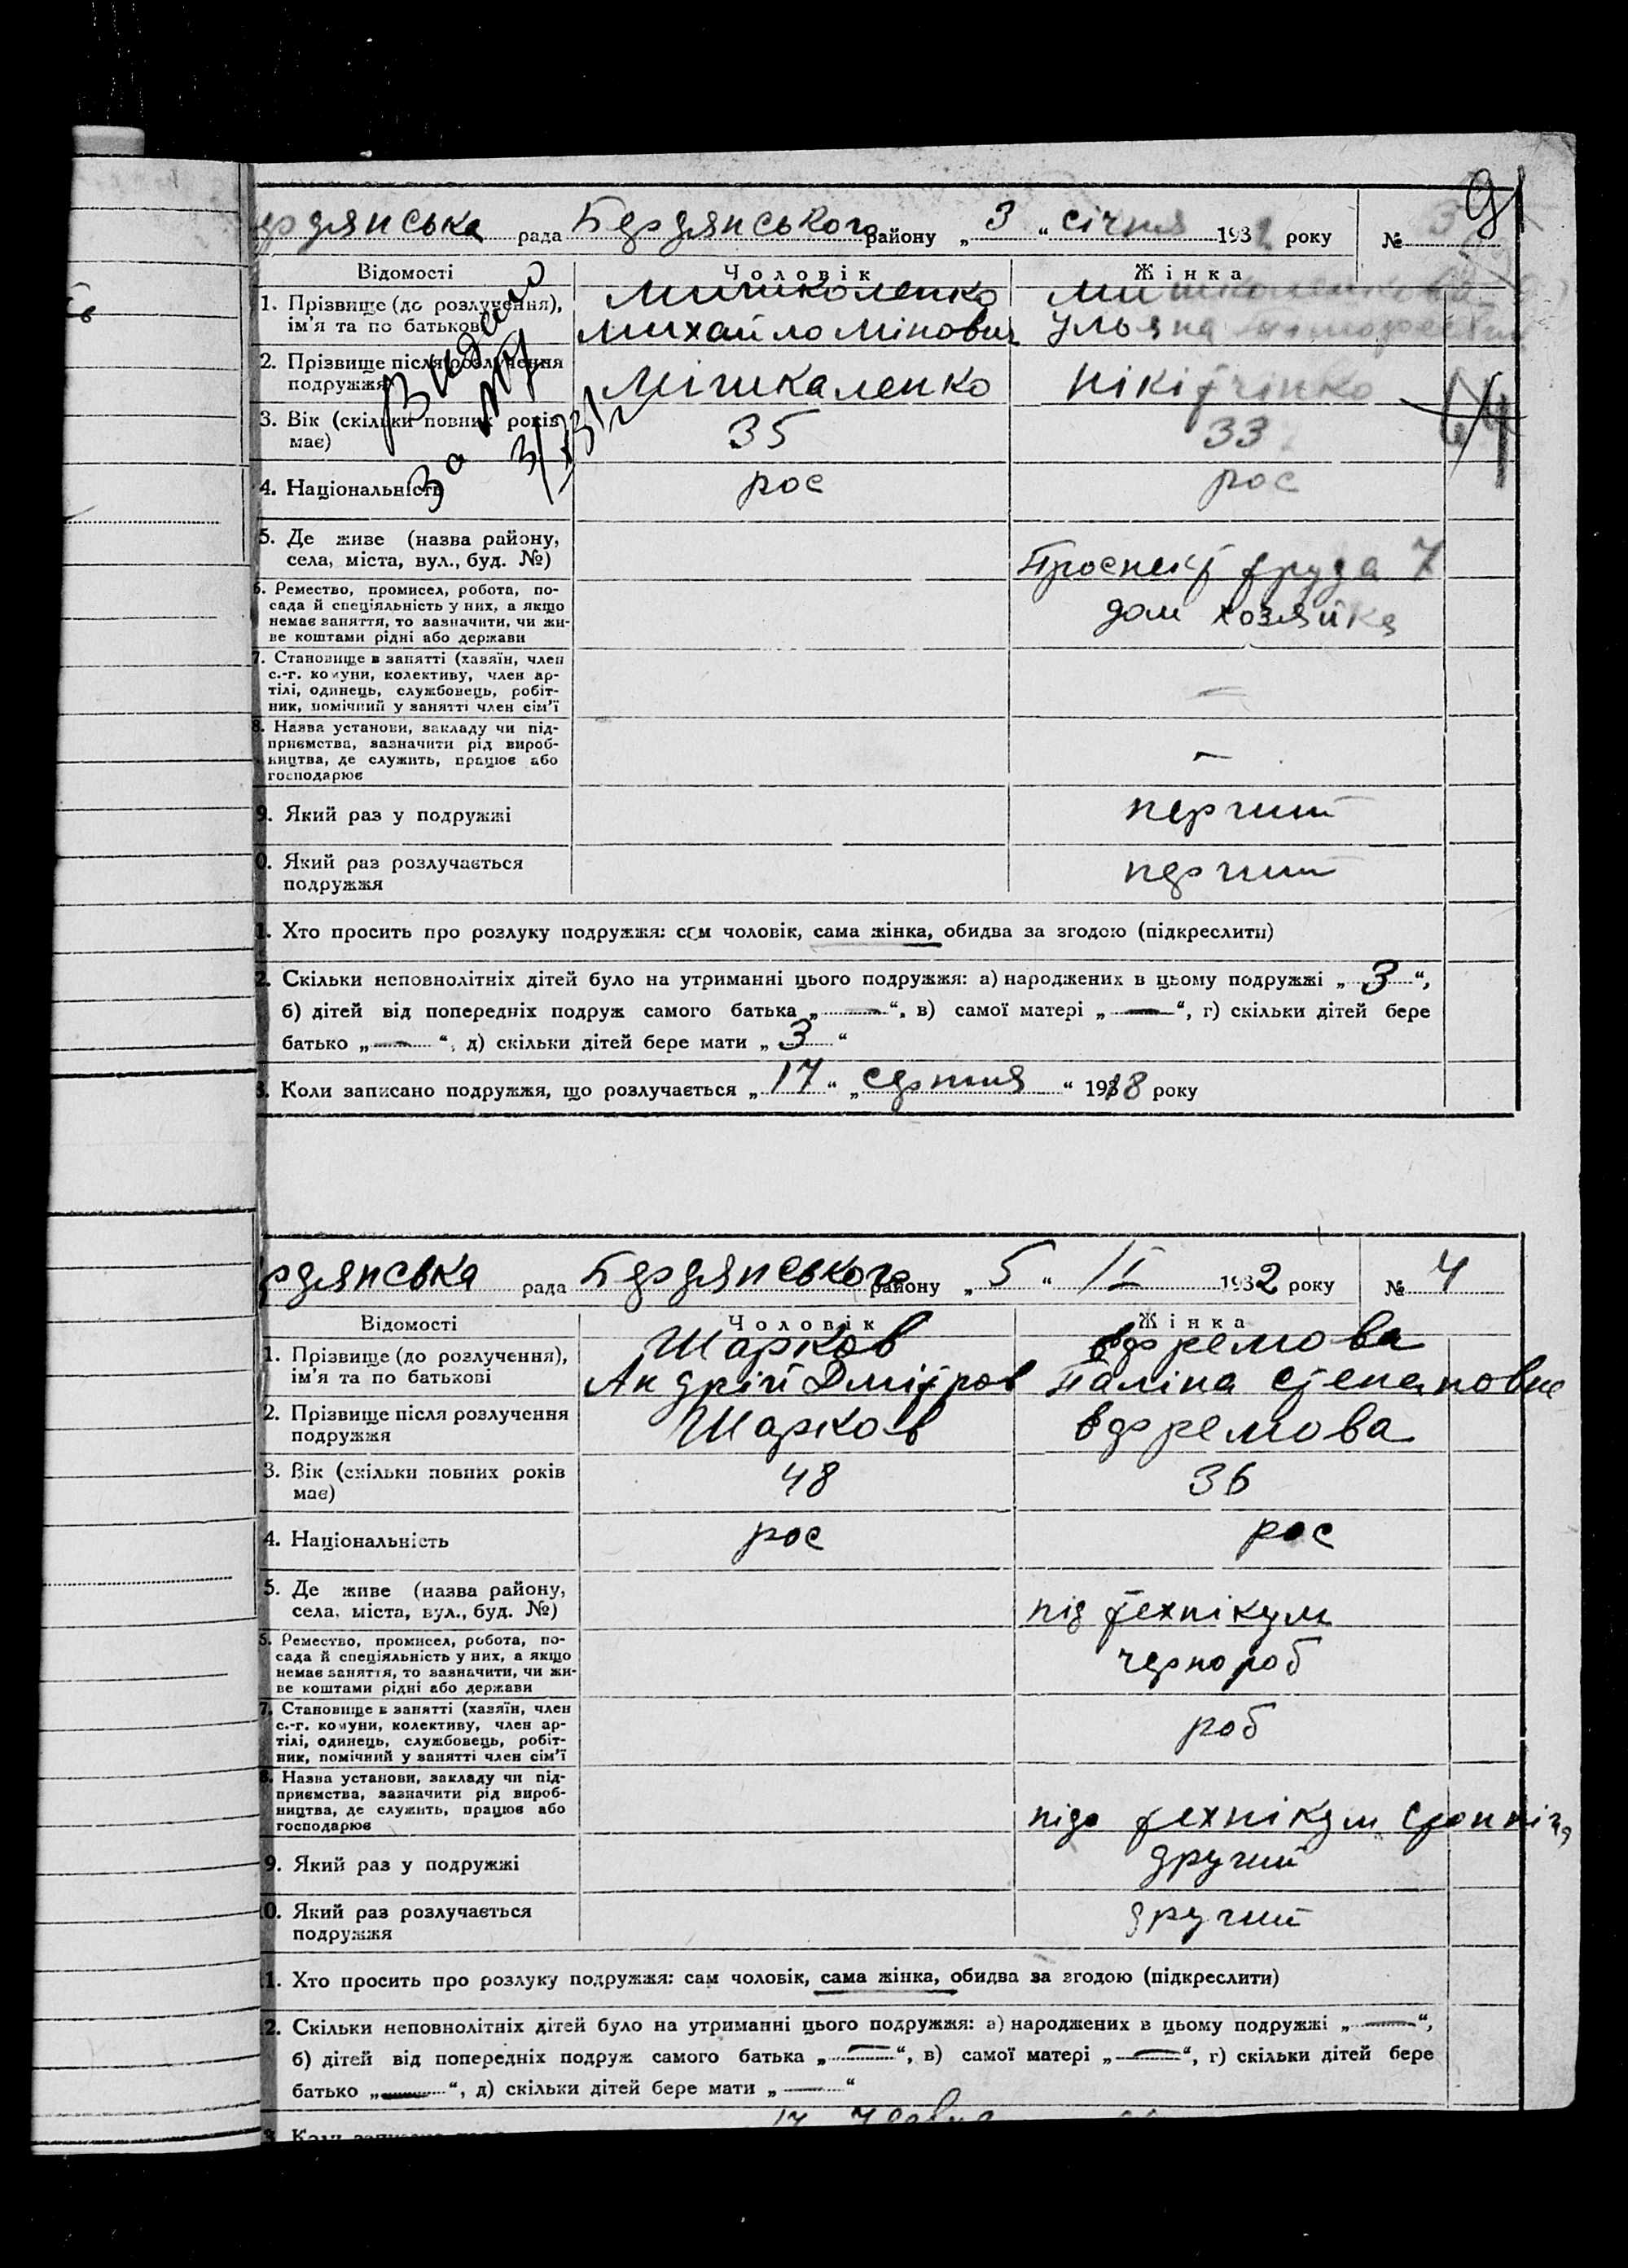 рдянська рада Бердянського району „ 3 “ січня 1932 року № 3
91
Відомості Чоловік Жінка
1. Прізвище (до розлучення), ім'я та по батькові
Мишколенко
Михайло Мінович
Ульяна
2. Прізвище після розлучення подружжя
Мішкаленко
3. Вік (скільки повних років має)
35 33
4. Національність
рос рос
Видано
5. Де живе (назва району, села, міста, вул., буд. №)
Проспект труда 7
6. Ремество, промисел, робота, по-
сада й спеціяльність у них, а якщо
немає заняття, то зазначити, чи жи-
ве коштами рідні або держави
дом хозяйка
7. Становище в занятті (хазяїн, член
с.-г. комуни, колективу, член ар-
тілі, одинець, службовець, робіт-
ник, помічний у занятті член сім'ї
—
8. Назва установи, закладу чи під-
приємства, зазначити рід вироб-
ництва, де служить, працює або
господарює
—
9. Який раз у подружжі
перший
0. Який раз розлучається
подружжя
перший
1. Хто просить про розлуку подружжя: сам чоловік, сама жінка, обидва за згодою (підкреслити)
2. Скільки неповнолітніх дітей було на утриманні цього подружжя: а) народжених в цьому подружжі „ 3 “,
б) дітей від попередніх подруж самого батька „ — “, в) самої матері „ — “, г) скільки дітей бере
батько „ — “, д) скільки дітей бере мати „ 3 “
3. Коли записано подружжя, що розлучається „ 17 “ „ серпня “ 1918 року
рдянська рада Бердянського району „ 5 “ /I 1932 року № 4
Відомості Чоловік Жінка
1. Прізвище (до розлучення),
ім'я та по батькові
Шарков
Андрій Дмітров
Єфремова
Паліна Степановна
2. Прізвище після розлучення
подружжя
Шарков Єфремова
3. Вік (скільки повних років
має)
48 36
4. Національність
рос рос
5. Де живе (назва району,
села, міста, вул., буд. №)
під технікум
6. Ремество, промисел, робота, по-
сада й спеціяльність у них, а якщо
немає заняття, то зазначити, чи жи-
ве коштами рідні або держави
чернороб
7. Становище в занятті (хазяїн, член
с.-г. комуни, колективу, член ар-
тілі, одинець, службовець, робіт-
ник, помічний у занятті член сім'ї
роб
8. Назва установи, закладу чи під-
приємства, зазначити рід вироб-
ництва, де служить, працює або
господарює
підо технікум
9. Який раз у подружжі
другий
0. Який раз розлучається
подружжя
другий
1. Хто просить про розлуку подружжя: сам чоловік, сама жінка, обидва за згодою (підкреслити)
2. Скільки неповнолітніх дітей було на утриманні цього подружжя: а) народжених в цьому подружжі „ — “,
б) дітей від попередніх подруж самого батька „ — “, в) самої матері „ — “, г) скільки дітей бере
батько „ — “, д) скільки дітей бере мати „ — “